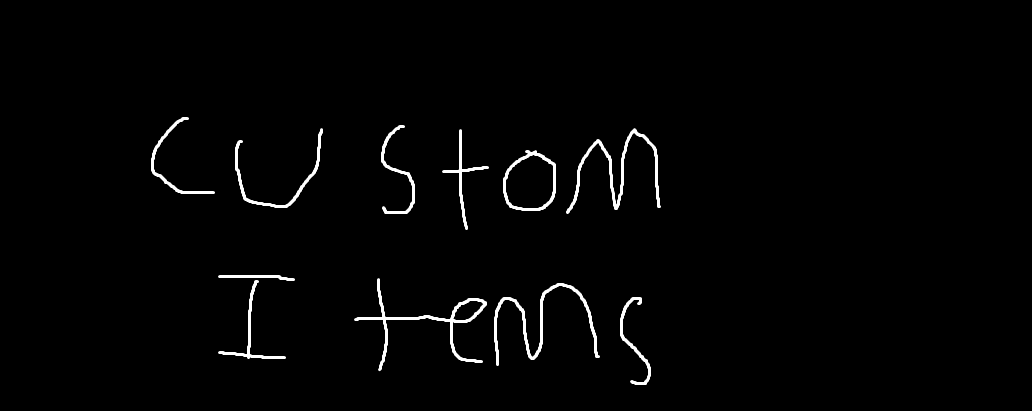 Custom
Items